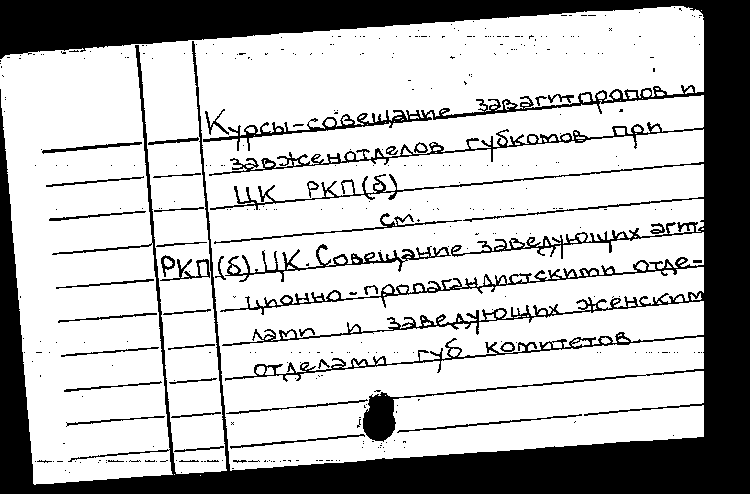 Курсы-совещание завагитпропов и
завженотделов губкомов при
ЦК РКП(б)
см.
РКП(б).ЦК. Совещание заведующих агита
ционно-пропагандистскими отде-
лами и заведующих женским
отделами губ. комитетов.